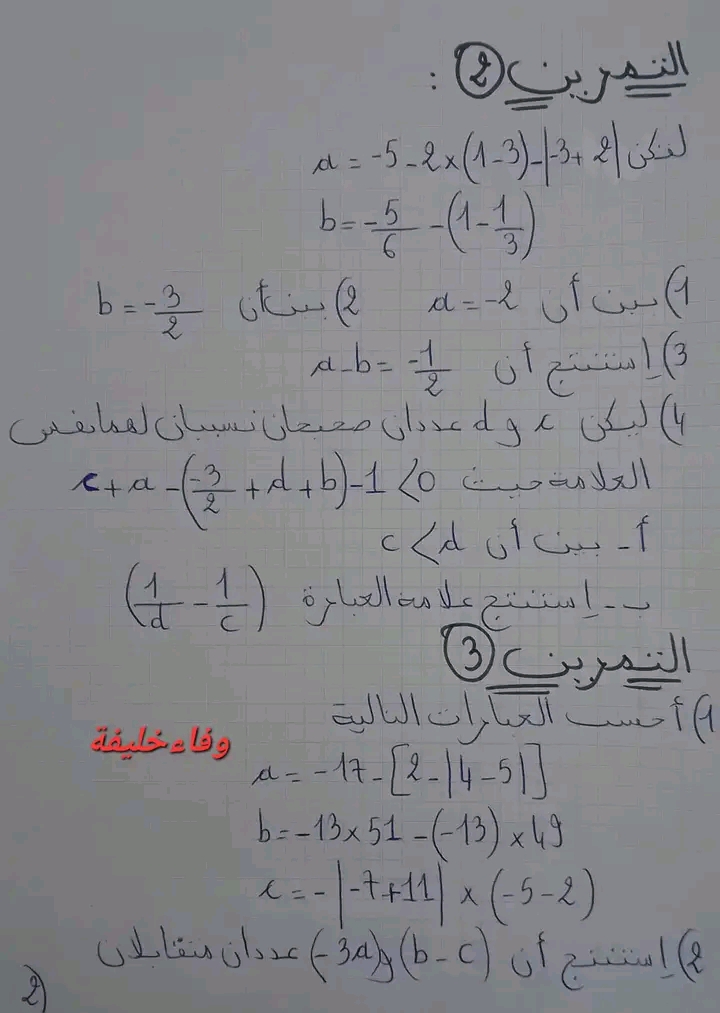 التمرين ②:
لتكن a = -5 - 2 × (1-3) - |-3 + 2|
b = -5/6 - (1 - 1/3)
1) بين أن a = -2 2) بين أن b = -3/2
3) إستنتج أن a - b = -1/2
4) ليكن c و d عددان صحيحان نسبيان لهما نفس
العلامة حيث c + a - (-3/2 + d + b) - 1 < 0
أ - بين أن c < d
ب - إستنتج علامة العبارة (1/d - 1/c)
التمرين ③
1) أحسب العبارات التالية
وفاء خليفة
a = -17 - [2 - |4 - 5|]
b = -13 × 51 - (-13) × 49
c = - |-7 + 11| × (-5 - 2)
2) إستنتج أن (b - c) و (-3a) عددان متقابلان
2)